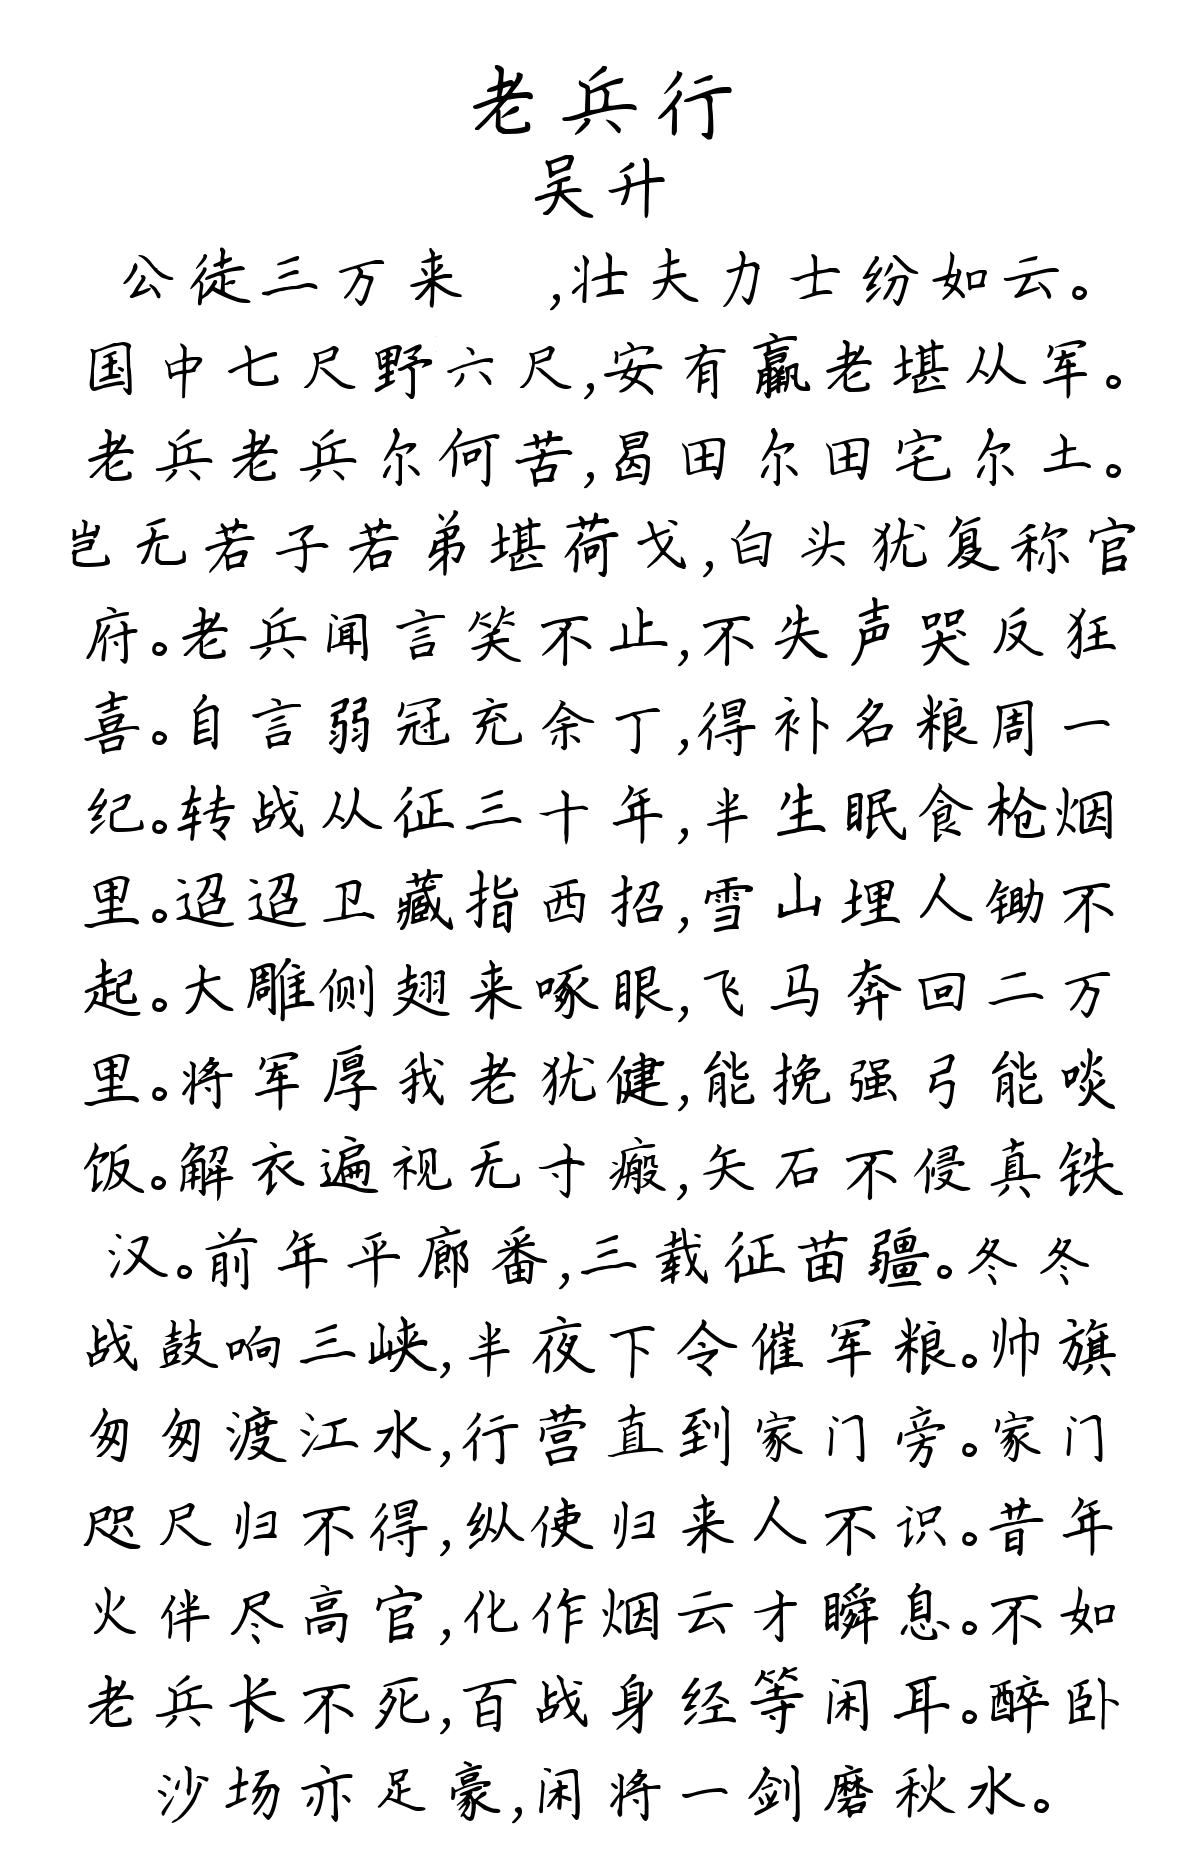 老兵行
吴升
公徒三万来 ,壮夫力士纷如云。
国中七尺野六尺,安有羸老堪从军。
老兵老兵尔何苦,曷田尔田宅尔土。
岂无若子若弟堪荷戈,白头犹复称官
府。老兵闻言笑不止,不失声哭反狂
喜。自言弱冠充余丁,得补名粮周一
纪。转战从征三十年,半生眠食枪烟
里。迢迢卫藏指西招,雪山埋人锄不
起。大雕侧翅来啄眼,飞马奔回二万
里。将军厚我老犹健,能挽强弓能啖
饭。解衣遍视无寸瘢,矢石不侵真铁
汉。前年平廊番,三载征苗疆。冬冬
战鼓响三峡,半夜下令催军粮。帅旗
匆匆渡江水,行营直到家门旁。家门
咫尺归不得,纵使归来人不识。昔年
火伴尽高官,化作烟云才瞬息。不如
老兵长不死,百战身经等闲耳。醉卧
沙场亦足豪,闲将一剑磨秋水。